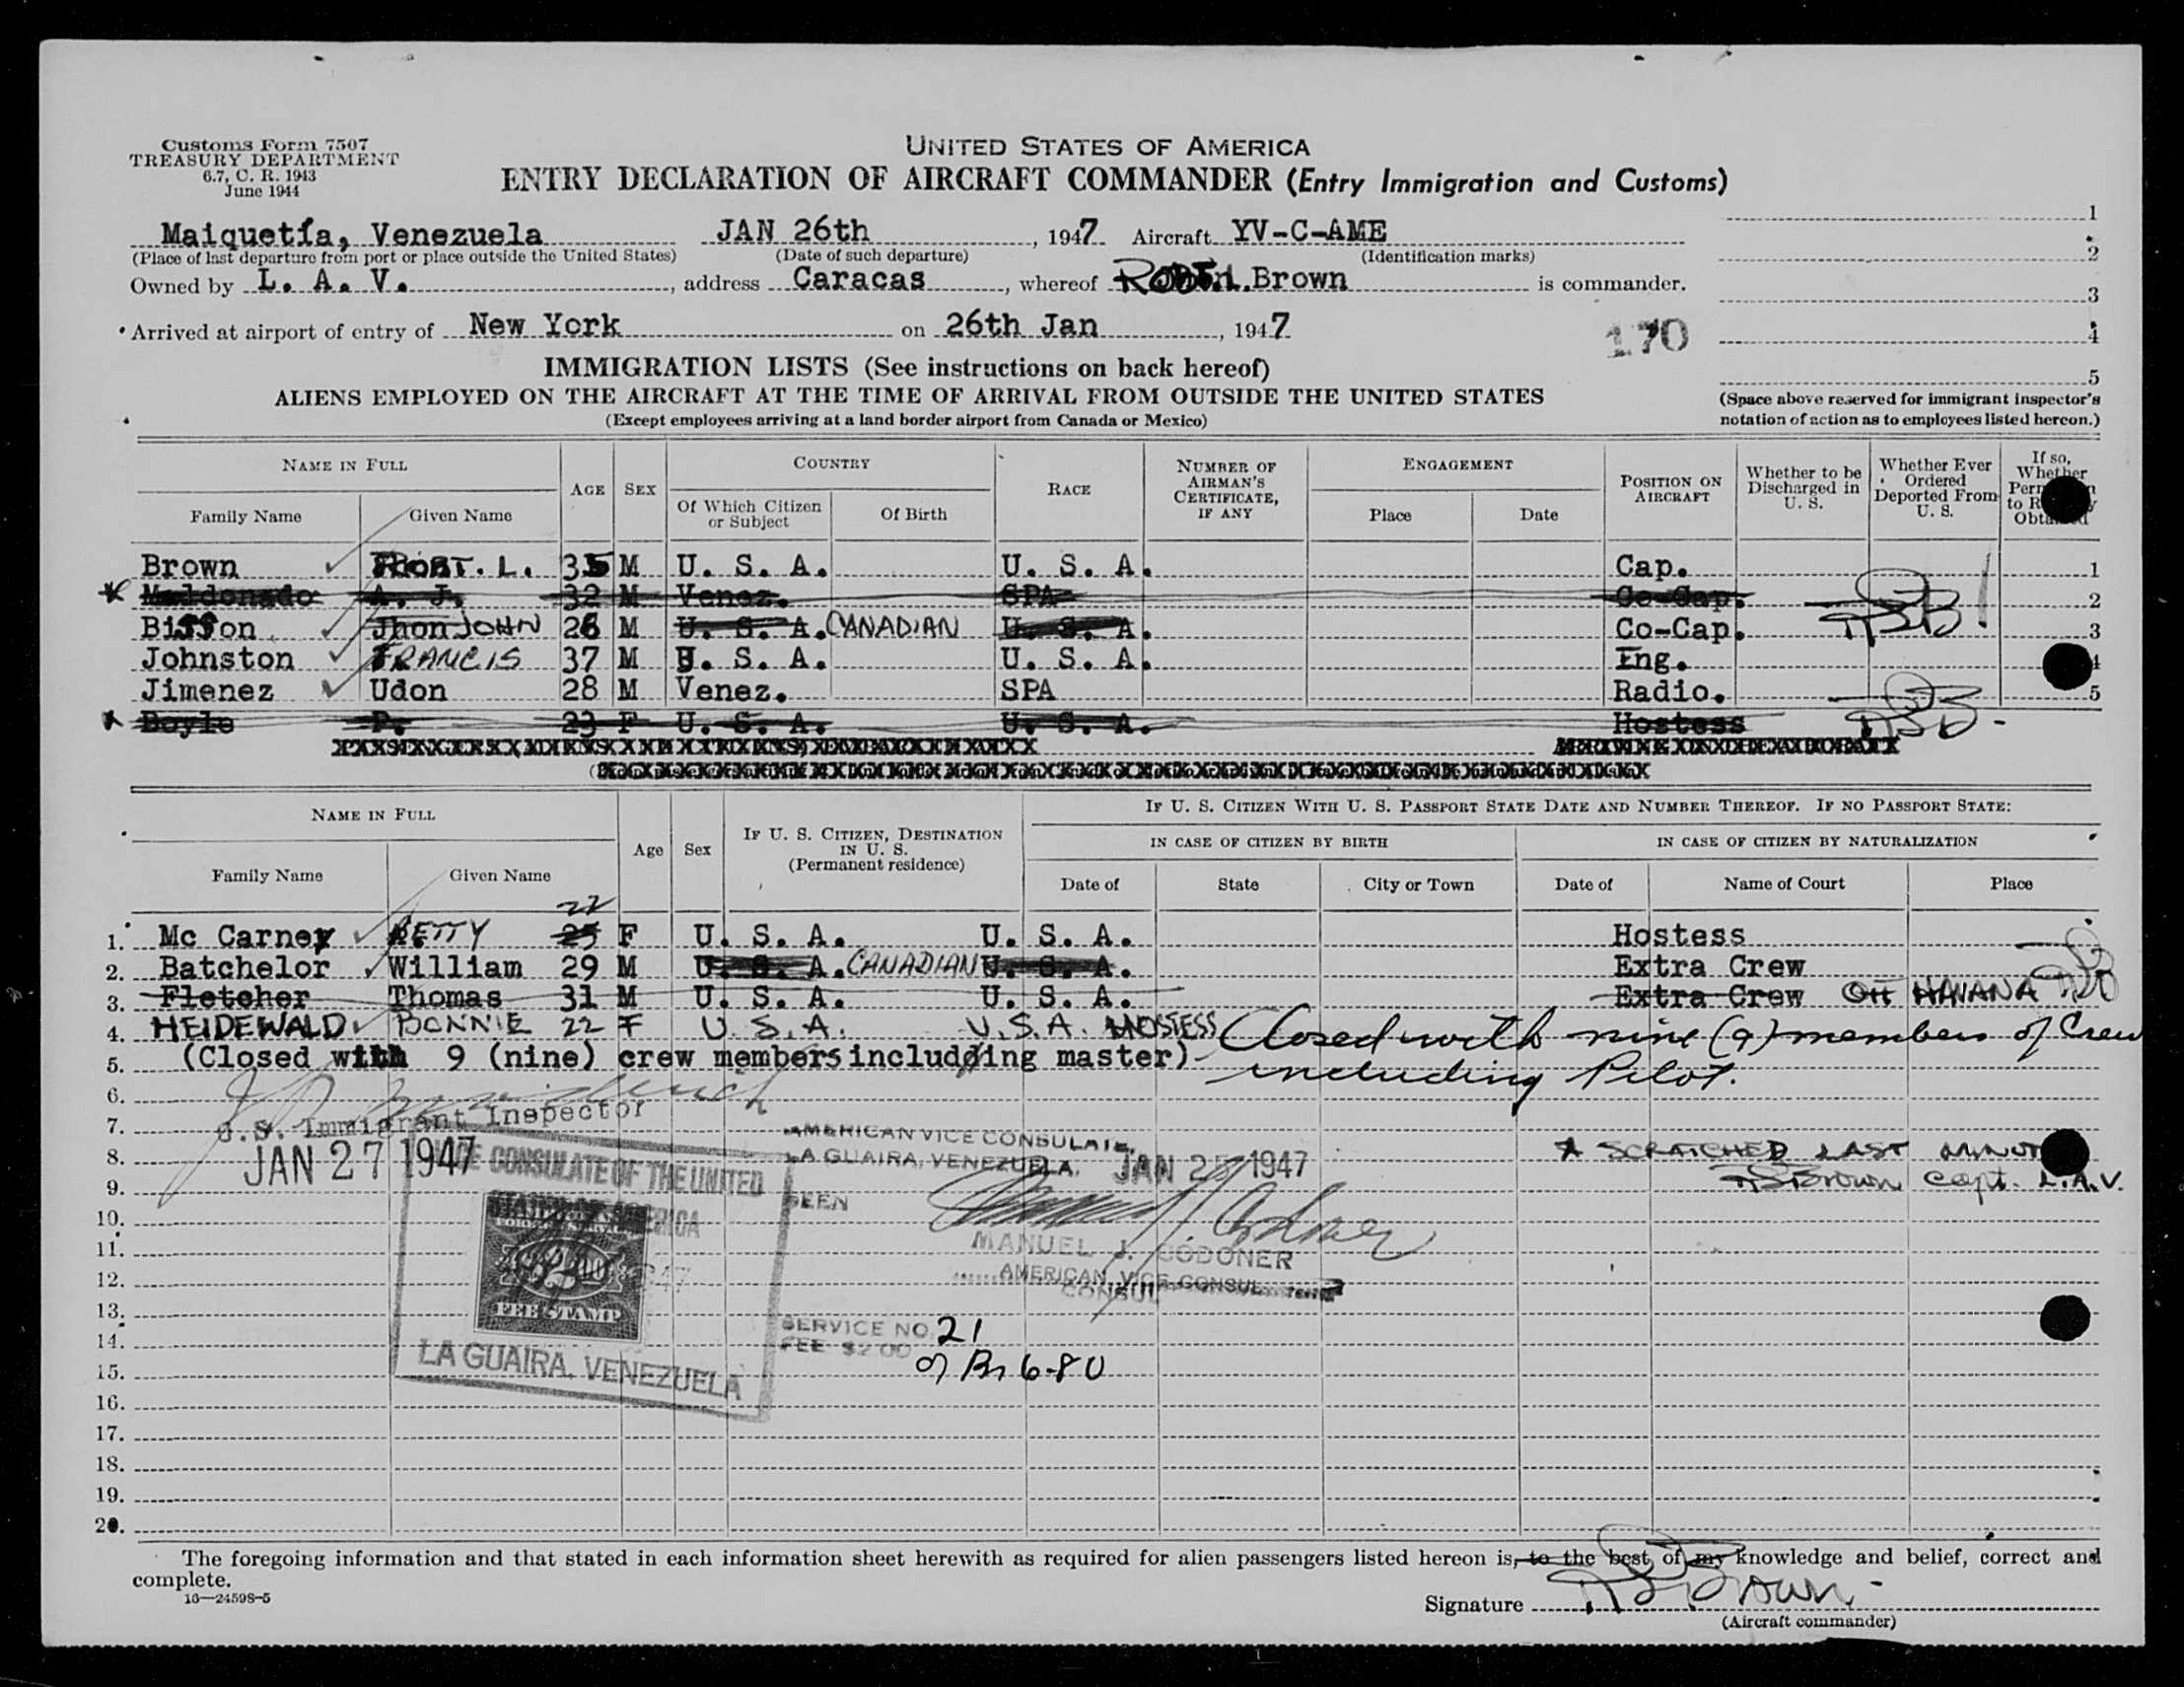 Customs Form 7507
TREASURY DEPARTMENT
6.7, C. R. 1943
June 1944
UNITED STATES OF AMERICA
ENTRY DECLARATION OF AIRCRAFT COMMANDER (Entry Immigration and Customs)
Maiquetía, Venezuela JAN 26th, 1947 Aircraft YV-C-AME
(Place of last departure from port or place outside the United States) (Date of such departure) (Identification marks)
Owned by L. A. V., address Caracas, whereof Brown is commander.
Arrived at airport of entry of New York on 26th Jan, 1947
170
1
2
3
4
5
(Space above reserved for immigrant inspector's notation of action as to employees listed hereon.)
IMMIGRATION LISTS (See instructions on back hereof)
ALIENS EMPLOYED ON THE AIRCRAFT AT THE TIME OF ARRIVAL FROM OUTSIDE THE UNITED STATES
(Except employees arriving at a land border airport from Canada or Mexico)
NAME IN FULL AGE SEX COUNTRY RACE NUMBER OF AIRMAN'S CERTIFICATE, IF ANY ENGAGEMENT POSITION ON AIRCRAFT Whether to be Discharged in U. S. Whether Ever Ordered Deported From U. S. If so, Whether
Family Name Given Name Of Which Citizen or Subject Of Birth Place Date
Brown ROBT. L. 35 M U. S. A. U. S. A. Cap. 1
Maldonado A. J. 32 M Venez. SPA Co-Cap. 2
Bisson Jhon JOHN 26 M U. S. A. CANADIAN U. S. A. Co-Cap. 3
Johnston FRANCIS 37 M U. S. A. U. S. A. Eng. 4
Jimenez Udon 28 M Venez. SPA Radio. 5
Boyle P. 23 F U. S. A. U. S. A. Hostess
NAME IN FULL Age Sex IF U. S. CITIZEN, DESTINATION IN U. S. (Permanent residence) IF U. S. CITIZEN WITH U. S. PASSPORT STATE DATE AND NUMBER THEREOF. IF NO PASSPORT STATE:
IN CASE OF CITIZEN BY BIRTH IN CASE OF CITIZEN BY NATURALIZATION
Family Name Given Name Date of State City or Town Date of Name of Court Place
22
1. Mc Carney BETTY 25 F U. S. A. U. S. A. Hostess
2. Batchelor William 29 M U. S. A. CANADIAN U. S. A. Extra Crew
3. Fletcher Thomas 31 M U. S. A. U. S. A. Extra Crew Off HAVANA
4. HEIDEWALD BONNIE 22 F U.S.A. U.S.A. HOSTESS Closed with nine (9) members of Crew
5. (Closed with 9 (nine) crew members including master) including Pilot.
6.
7. U.S. Immigrant Inspector
JAN 27 1947
AMERICAN VICE CONSULATE,
8. LA GUAIRA, VENEZUELA. JAN 25 1947
SCRATCHED LAST
9. SEEN
Brown Capt. L.A.V.
VICE CONSULATE OF THE UNITED
STATES OF AMERICA
10.
11. MANUEL J. CODONER
12. AMERICAN VICE CONSUL
CONSUL
13. FEE STAMP
SERVICE NO. 21
14. FEE $2.00
15. LA GUAIRA, VENEZUELA
Bs 6.80
16.
17.
18.
19.
20.
The foregoing information and that stated in each information sheet herewith as required for alien passengers listed hereon is, to the best of my knowledge and belief, correct and
complete.
16—24598-5
Signature Brown
(Aircraft commander)